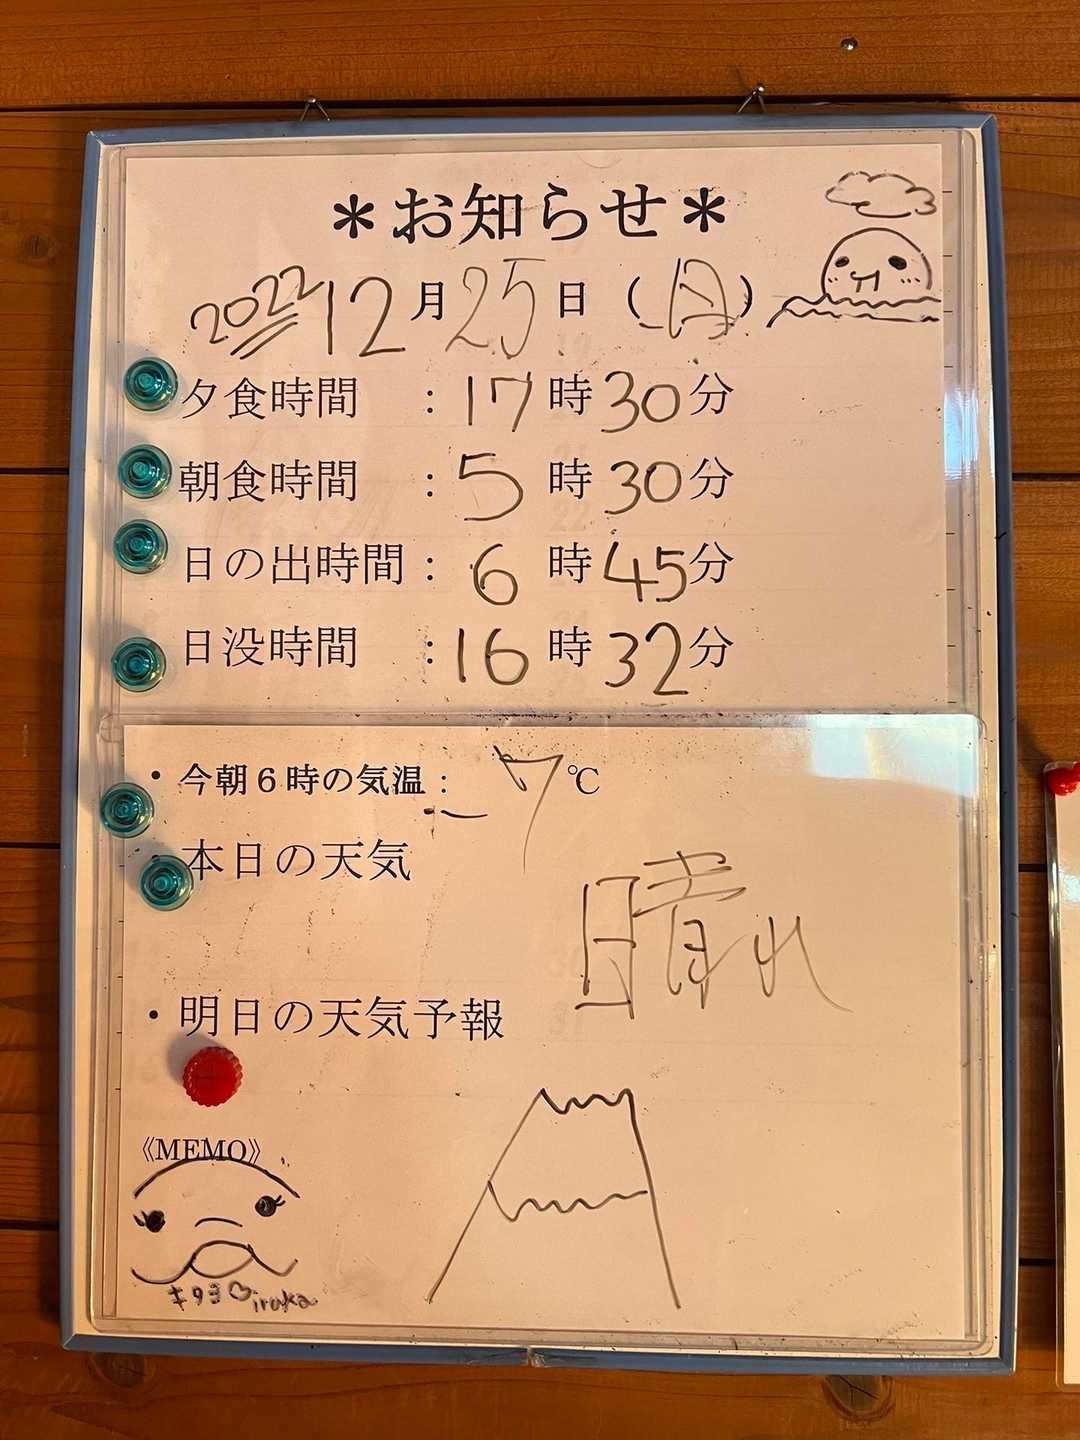 ＊お知らせ＊
2022 12月25日（月）
夕食時間 ：17時30分
朝食時間 ：5時30分
日の出時間：6時45分
日没時間 ：16時32分
・今朝６時の気温：-7℃
・本日の天気
晴れ
・明日の天気予報
《MEMO》
キタヨ♡iruka